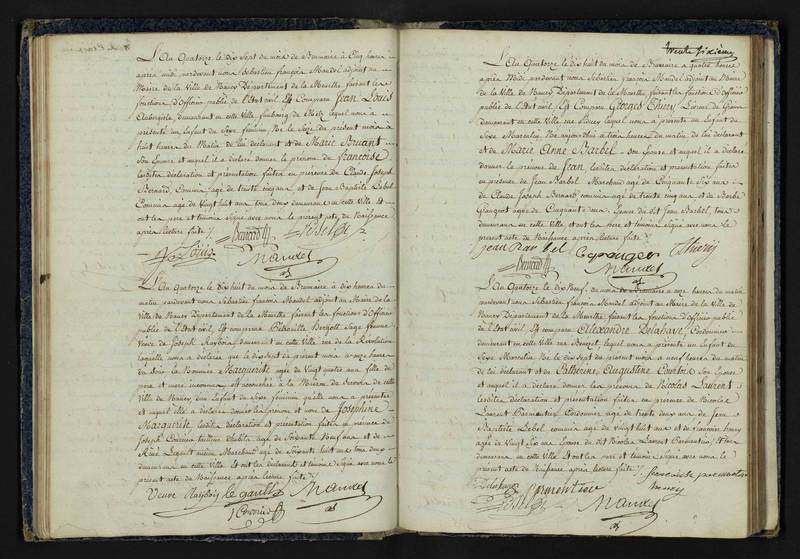 L'An Quatorze le dix Sept du mois de Brumaire à Cinq heures
après midi pardevant nous Sébastien françois Mandel adjoint au
Maire de la Ville de Nancy Département de la Meurthe faisant les
fonctions d'Officier public de l'Etat civil, Est Comparu Jean Louis
demeurant en cette Ville, faubourg de Metz lequel nous a
présenté un Enfant du Sexe féminin, Né le Seize du présent mois à
huit heures du Matin de lui déclarant et de Marie Bruant
son Epouse et auquel il a déclaré donner le prénom de françoise
lesdites déclaration et présentation faites en présence de Claude Joseph
Bernard, Commis agé de trente cinq ans et de Jean Baptiste Lebel
Commis agé de Vingt huit ans tous deux demeurans en cette Ville Et
ont les père et témoins Signé avec nous le présent acte de Naissance
après lecture faite
Bernard Lebel
J Louis Mandel
L'An Quatorze le dix huit du mois de Brumaire à dix heures du
matin pardevant nous Sébastien françois Mandel adjoint au Maire de la
Ville de Nancy Département de la Meurthe faisant les fonctions d'Officier
public de l'Etat civil, Est comparue Sage femme
Veuve de Joseph demeurant en cette Ville rue de la Révolution
laquelle nous a déclaré que le dix Sept du présent mois à onze heures
du Soir la Nommée Marguerite agée de Vingt quatre ans fille de
père et mère inconnus, est accouchée à la Maison de Secours de cette
Ville de Nancy d'un Enfant du Sexe féminin qu'elle nous a présenté
et auquel elle a déclaré donner les prénoms et nom de Joséphine
Marguerite lesdites déclaration et présentation faites en présence de
Joseph agé de Soixante Neuf ans et de
Legault Marchand agé de Soixante huit ans tous deux
demeurans en cette Ville Et ont les déclarante et témoins Signé avec nous le
présent acte de Naissance après lecture faite
Veuve le gault Mandel
trente Sixième
L'An Quatorze le dix huit du mois de Brumaire à quatre heures
après Midi pardevant nous Sébastien françois Mandel adjoint au Maire
de la Ville de Nancy Département de la Meurthe faisant les fonctions d'Officier
public de l'Etat civil, Est Comparu Georges Thiery
demeurant en cette Ville rue lequel nous a présenté un Enfant du
Sexe Masculin, Né aujourd'hui à trois heures du matin de lui déclarant
et de Marie Anne Barbel son Epouse et auquel il a déclaré
donner le prénom de Jean lesdites déclaration et présentation faites
en présence de Jean Barbel Marechal agé de Cinquante Six ans
de Claude Joseph Bernard, commis agé de trente cinq ans et de Barbe
agée de Cinquante ans Epouse dudit Jean Barbel, tous
demeurans en cette Ville et ont les père et témoins Signé avec nous le
présent acte de Naissance après lecture faite
jean Bar bel Thiery
Bernard Mandel
L'An Quatorze le dix Neuf du mois de Brumaire à onze heures du matin
pardevant nous Sébastien françois Mandel adjoint au Maire de la Ville de
Nancy Département de la Meurthe faisant les fonctions d'Officier public
de l'Etat civil, Est comparu Alexandre Delahaye Cordonnier
demeurant en cette Ville rue lequel nous a présenté un Enfant du
Sexe Masculin Né le dix Sept du présent mois à neuf heures du matin
de lui déclarant et de Catherine Augustine Courtois Son Epouse
et auquel il a déclaré donner les prénoms de Nicolas Laurent
lesdites déclaration et présentation faites en présence de Nicolas
Laurent Parmentier Cordonnier agé de trente deux ans de Jean
Baptiste Lebel commis agé de vingt huit ans et de françoise
agée de Vingt Six ans Epouse du dit Nicolas Laurent Parmentier, Et tous
demeurans en cette Ville Et ont les père et témoins Signé avec nous le
présent acte de Naissance après lecture faite
Delahaye Parmentier
Lebel Mandel